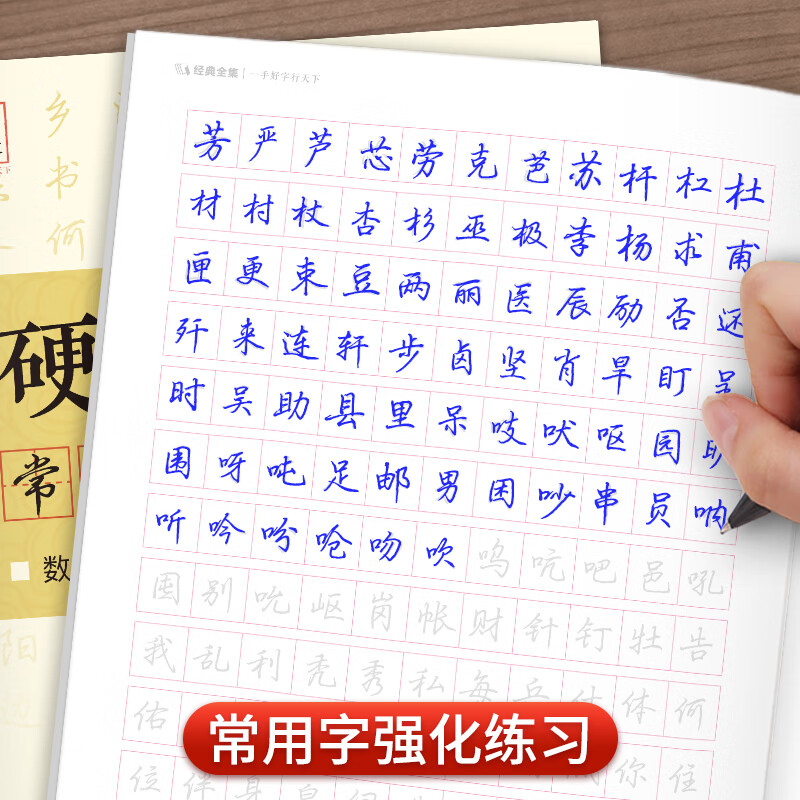 经典全集 | 一手好字行天下
芳严芦芯劳克芭苏杆杠杜
材村杖杏杉巫极李杨求甫
匣更束豆两丽医辰励否还
歼来连轩步卤坚肖旱盯呈
时吴助县里呆吱吠呕园
围呀吨足邮男困吵串员呐
听吟吩呛吻吹呜吭吧邑吼
囤别吮岖岗帐财针钉牡告
我乱利秃秀私每兵估体何
佑
位伴身皂你住
常用字强化练习
乡
书
何
硬
常
数
阳
边